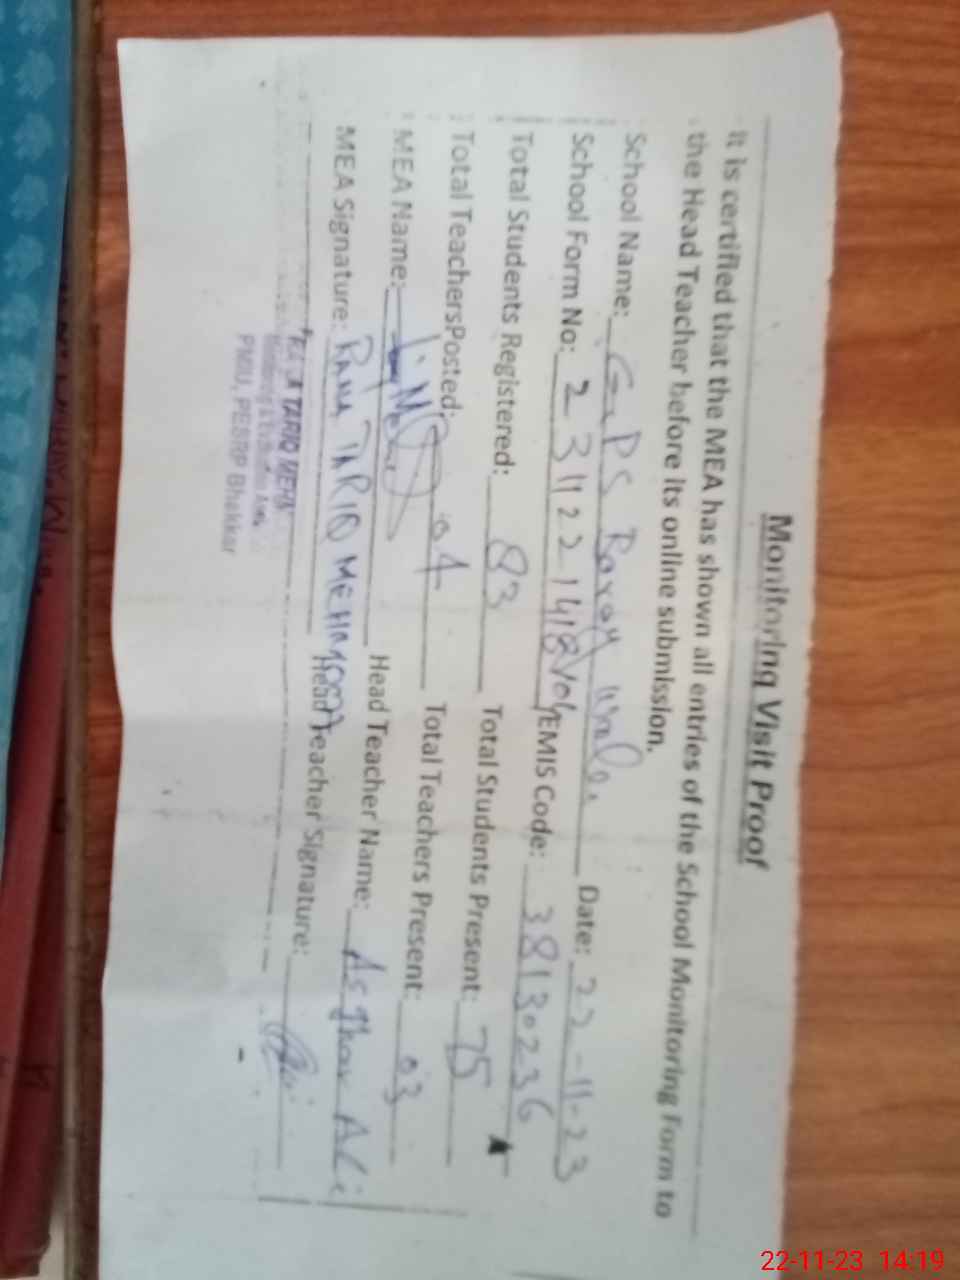 Monitoring Visit Proof
It is certified that the MEA has shown all entries of the School Monitoring Form to
the Head Teacher before its online submission.
School Name: GPS Date: 22-11-23
School Form No: EMIS Code: 38130236
Total Students Registered: 83 Total Students Present: 75
Total TeachersPosted: 04 Total Teachers Present: 03
MEA Name: Head Teacher Name: Asghar Ali
MEA Signature: RANA TARIQ MEHMOOD Head Teacher Signature:
TARIQ MEHM
PMIU, PESRP Bhakkar
22-11-23 14:19